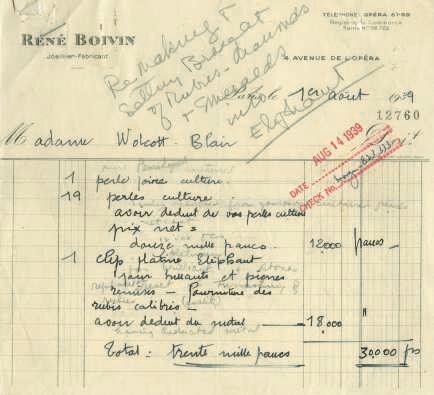 TÉLÉPHONE: OPÉRA 67-69
Registre du Commerce
RENÉ BOIVIN
Joaillier-Fabricant
4, AVENUE DE L'OPÉRA
Remaking &
Setting Bracelet
of Rubies-diamonds
+ Emeralds
into
Elephant
1er août 1939
12760
Madame Wolcott-Blair
DATE AUG 14 1939
CHECK No.
1 perle poire culture.
19 perles culture
avoir deduct de vos perles culture
prix net =
douze mille francs. 12,000 francs
1 clip platine Elephant
pour brillants et pierres
remises - Fourniture des
rubis calibrés -
avoir deduct du metal 18,000 "
Total: trente mille francs 30,000 frs